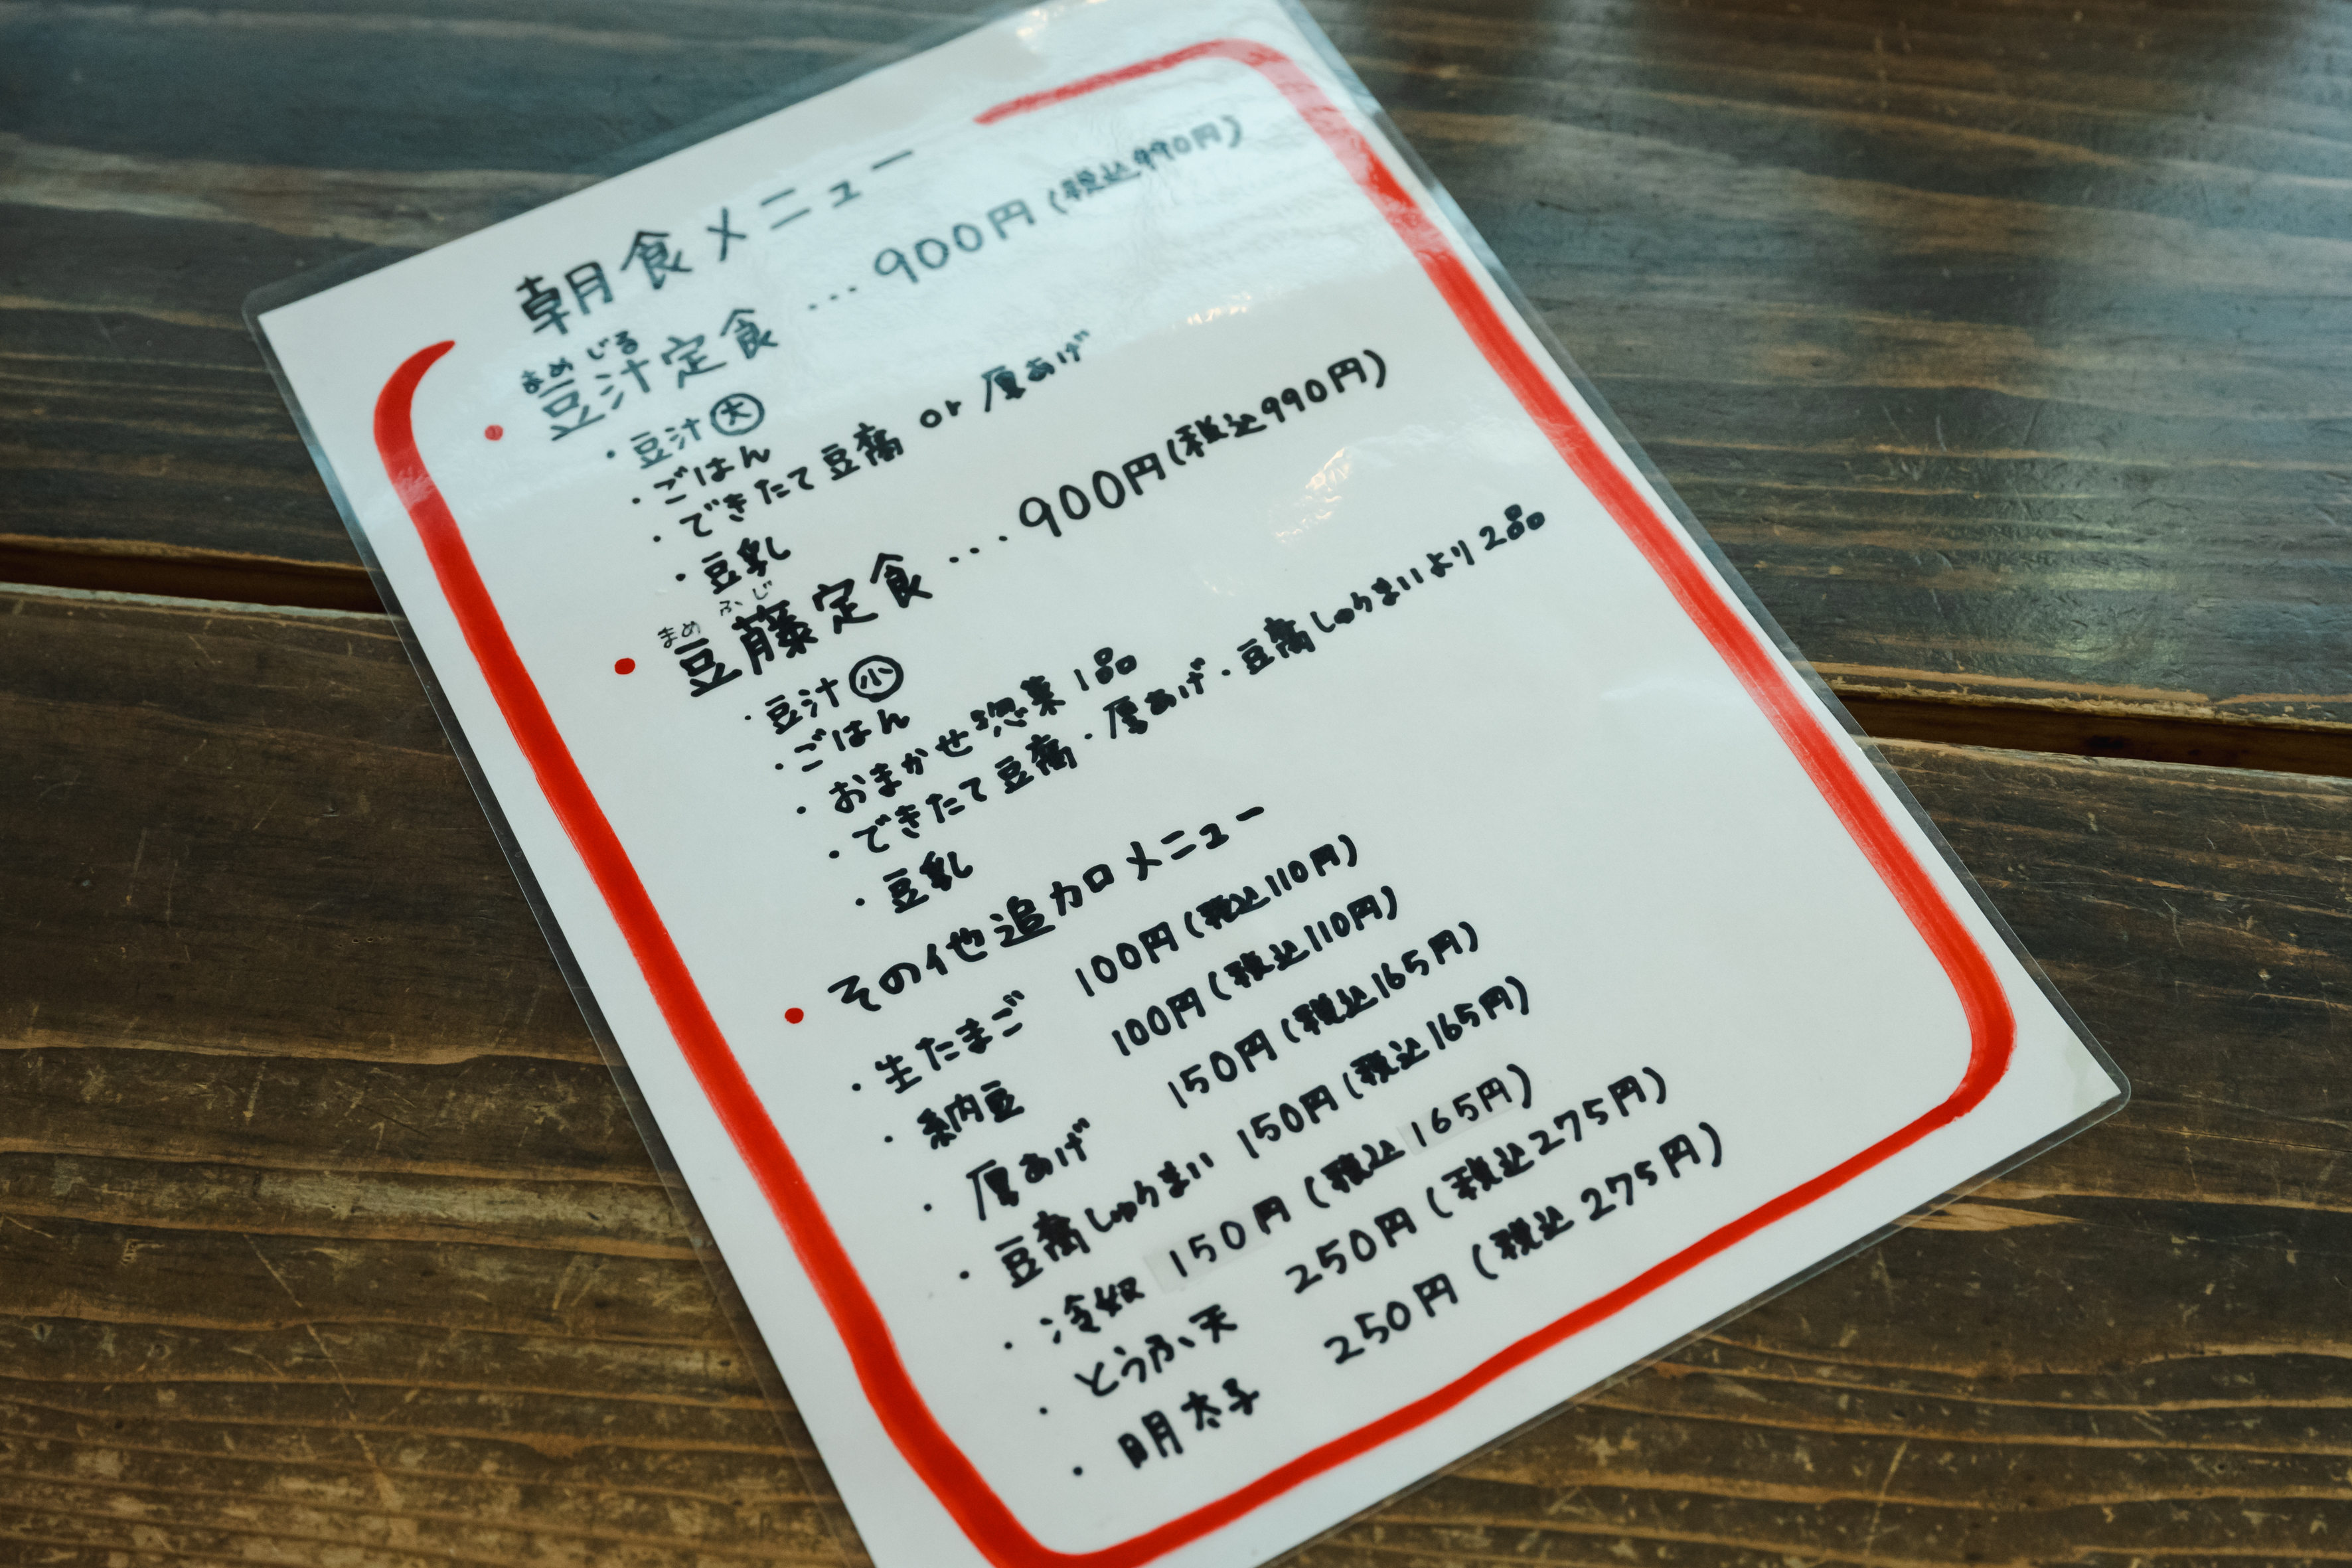 朝食メニュー
まめじる
• 豆汁定食 ... 900円(税込990円)
・豆汁㊅
・ごはん
・できたて豆腐 or 厚あげ
・豆乳
まめ ふじ
• 豆藤定食 ... 900円(税込990円)
・豆汁㊉
・ごはん
・おまかせ惣菜1品
・できたて豆腐・厚あげ・豆腐しゅうまいより2品
・豆乳
• その他追加メニュー
・生たまご 100円(税込110円)
・納豆 100円(税込110円)
・厚あげ 150円(税込165円)
・豆腐しゅうまい 150円(税込165円)
・冷奴 150円(税込165円)
・とうふ天 250円(税込275円)
・明太子 250円(税込275円)